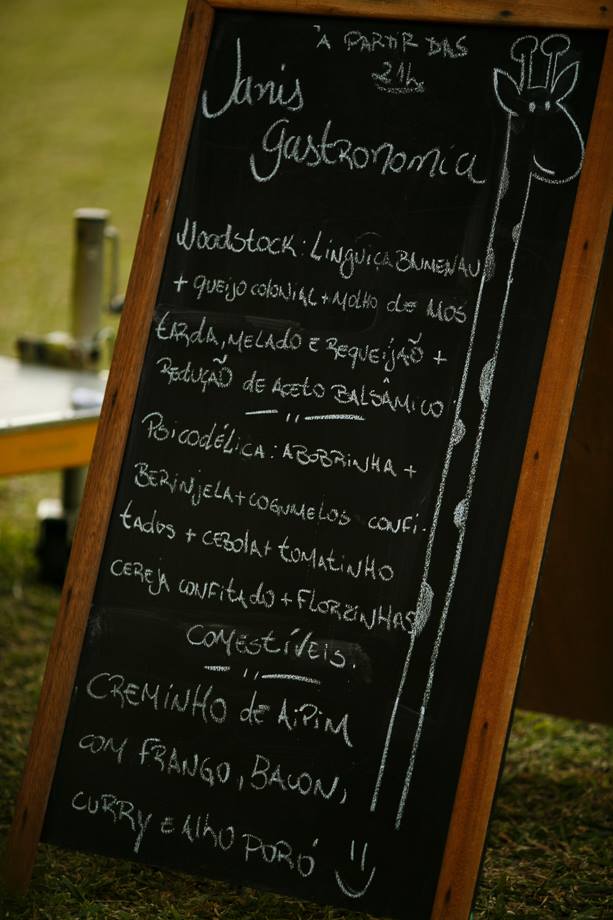 À PARTIR DAS
21h
Janis
Gastronomia
Woodstock: Linguiça BlUMENAU
+ QUEIJO COLONIAL + MOLHO de MOS
TARDA, MELADO E REQUEIJÃO +
REDUÇÃO de ACETO BALSÂMICO
Psicodélica: ABOBRINHA +
BERINJELA + COGUMELOS CONFI-
tados + CEBOLA + TOMATINHO
CEREJA CONFITADO + FLORZINHAS
COMESTÍVEIS.
CREMINHO de AIPIM
COM FRANGO, BACON,
CURRY E AlhO PORÓ